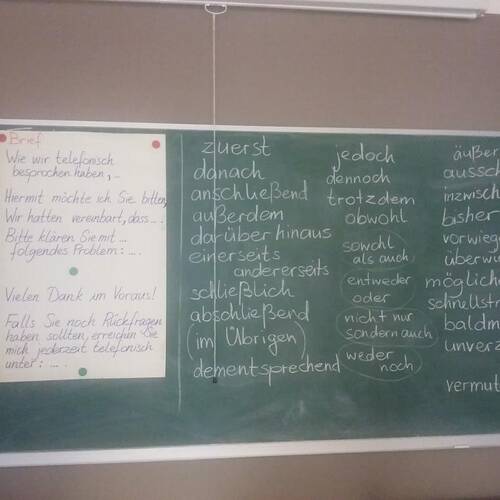 Brief
Wie wir telefonisch
besprochen haben, ..
Hiermit möchte ich Sie bitten,
Wir hatten vereinbart, dass ...
Bitte klären Sie mit ...
folgendes Problem: ....
Vielen Dank im Voraus!
Falls Sie noch Rückfragen
haben sollten, erreichen Sie
mich jederzeit telefonisch
unter: ....
zuerst
danach
anschließend
außerdem
darüber hinaus
einerseits
andererseits
schließlich
abschließend
(im Übrigen)
dementsprechend
jedoch
dennoch
trotzdem
obwohl
sowohl
als auch
entweder
oder
nicht nur
sondern auch
weder
noch
äußer
aussch
inzwisch
bisher
vorwieg
überwi
mögliche
schnellst
baldm
unverz
vermut